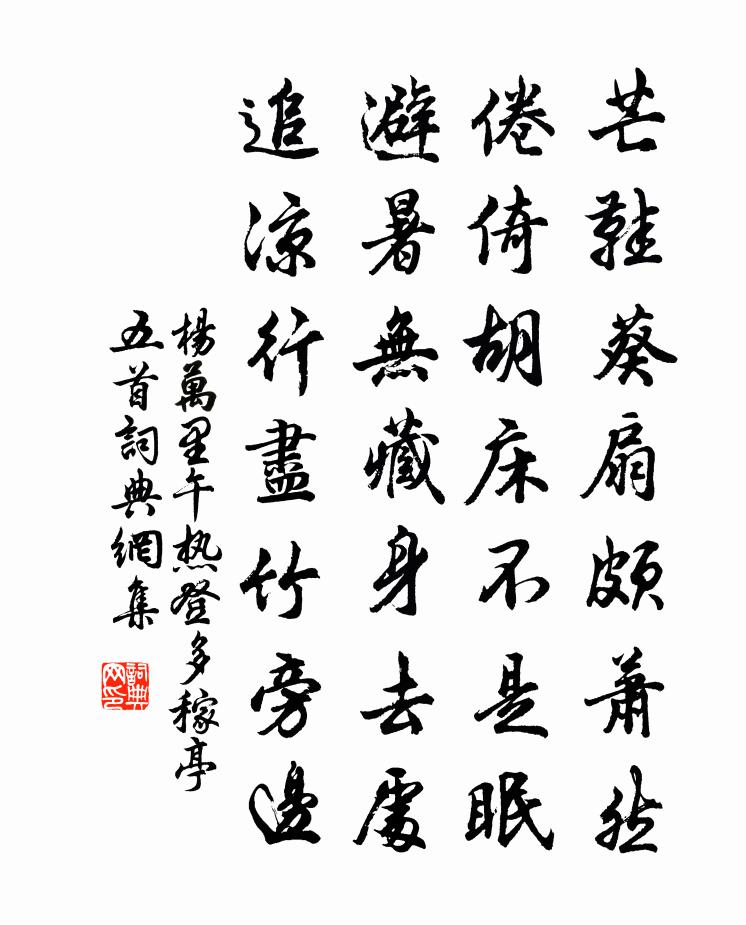 芒鞋葵扇頗蕭然
倦倚胡床不是眠
避暑無藏身去處
追涼行盡竹旁邊
楊萬里午热登多稼亭
五首詞典網集
詞典
网印